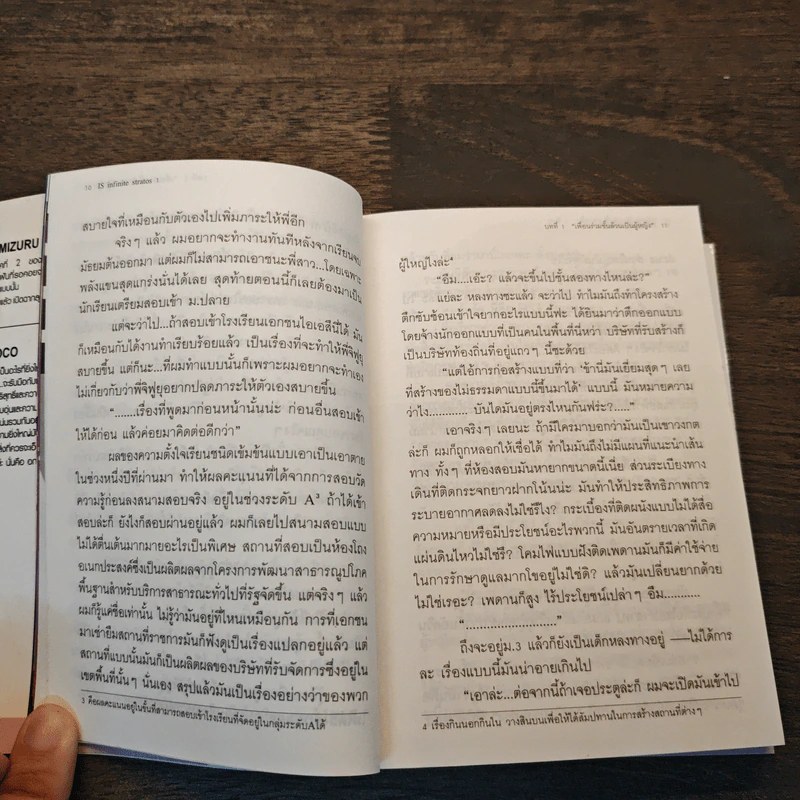 MIZURU
คที่ 2 ของ
OCO
16 IS infinite stratos 1
สบายใจที่เหมือนกับตัวเองไปเพิ่มภาระให้พี่อีก
จริงๆ แล้ว ผมอยากจะทำงานทันทีหลังจากเรียนจบ
ม้อยมต้นออกมา แต่ผมก็ไม่สามารถเอาชนะพี่สาว...โดยเฉพาะ
พลังแขนสุดแกร่งนั่นได้เลย สุดท้ายตอนนี้ก็เลยต้องมาเป็น
นักเรียนเตรียมสอบเข้า ม.ปลาย
แต่จะว่าไป...ถ้าสอบเข้าโรงเรียนเอกชนไอเอสีนี่ได้ มัน
ก็เหมือนกับได้งานทำเรียบร้อยแล้ว เป็นเรื่องที่จะทำให้พี่จิฟุยุ
สบายขึ้น แต่ก็นะ...ที่ผมทำแบบนั้นก็เพราะผมอยากจะทำเอง
ไม่เกี่ยวกับว่าพี่จิฟุยุอยากปลดภาระให้ตัวเองสบายขึ้น
“.......เรื่องที่พูดมาก่อนหน้านั้นน่ะ ก่อนอื่นสอบเข้า
ให้ได้ก่อน แล้วค่อยมาคิดต่อดีกว่า”
ผลของความตั้งใจเรียนชนิดเข้มข้นแบบเอาเป็นเอาตาย
ในช่วงหนึ่งปีที่ผ่านมา ทำให้ผลคะแนนที่ได้จากการสอบวัด
ความรู้ก่อนลงสนามสอบจริง อยู่ในช่วงระดับ A³ ถ้าได้เข้า
สอบล่ะก็ ยังไงก็สอบผ่านอยู่แล้ว ผมก็เลยไปสนามสอบแบบ
ไม่ได้ตื่นเต้นมากมายอะไรเป็นพิเศษ สถานที่สอบเป็นห้องโถง
อเนกประสงค์ซึ่งเป็นผลิตผลจากโครงการพัฒนาสาธารณูปโภค
พื้นฐานสำหรับบริการสาธารณะทั่วไปที่รัฐจัดขึ้น แต่จริงๆ แล้ว
ผมก็รู้แค่ชื่อเท่านั้น ไม่รู้ว่ามันอยู่ที่ไหนเหมือนกัน การที่เอกชน
มาเช่ายืมสถานที่ราชการมันก็ฟังดูเป็นเรื่องแปลกอยู่แล้ว แต่
สถานที่แบบนั้นมันก็เป็นผลิตผลของบริษัทที่รับจัดการซึ่งอยู่ใน
เขตพื้นที่นั้นๆ นั่นเอง สรุปแล้วมันเป็นเรื่องอย่างว่าของพวก
3 คือผลคะแนนอยู่ในขั้นที่สามารถสอบเข้าโรงเรียนที่จัดอยู่ในกลุ่มระดับAได้
บทที่ 1 "เพื่อนร่วมชั้นล้วนเป็นผู้หญิง" 17
ผู้ใหญ่ไงล่ะ⁴
“อืม....เอ๊ะ? แล้วจะขึ้นไปชั้นสองทางไหนล่ะ?”
แย่ละ หลงทางซะแล้ว จะว่าไป ทำไมมันถึงทำโครงสร้าง
ตึกซับซ้อนเข้าใจยากอะไรแบบนี้ฟะ ได้ยินมาว่าตึกออกแบบ
โดยจ้างนักออกแบบที่เป็นคนในพื้นที่นี่หว่า บริษัทที่รับสร้างก็
เป็นบริษัทท้องถิ่นที่อยู่แถวๆ นี้ซะด้วย
“แต่ไอ้การก่อสร้างแบบที่ว่า ‘ข้านี่มันเยี่ยมสุดๆ เลย
ที่สร้างของไม่ธรรมดาแบบนี้ขึ้นมาได้’ แบบนี้ มันหมายความ
ว่าไง............ บันไดมันอยู่ตรงไหนกันฟร่ะ?.....”
เอาจริงๆ เลยนะ ถ้ามีใครมาบอกว่ามันเป็นเขาวงกต
ล่ะก็ ผมก็ถูกหลอกให้เชื่อได้ ทำไมมันถึงไม่มีแผนที่แนะนำเส้น
ทาง ทั้งๆ ที่ห้องสอบมันหายากขนาดนี้เนี่ย ส่วนระเบียงทาง
เดินที่ติดกระจกยาวฝากโน้นน่ะ มันทำให้ประสิทธิภาพการ
ระบายอากาศลดลงไม่ใช่รึไง? กระเบื้องที่ติดผนังแบบไม่ได้สื่อ
ความหมายหรือมีประโยชน์อะไรพวกนี้ มันอันตรายเวลาที่เกิด
แผ่นดินไหวไม่ใช่รึ? โคมไฟแบบฝังติดเพดานมันก็มีค่าใช้จ่าย
ในการรักษาดูแลมากโขอยู่ไม่ใช่ดิ? แล้วมันเปลี่ยนยากด้วย
ไม่ใช่เรอะ? เพดานก็สูง ไร้ประโยชน์เปล่าๆ อืม..........
“.........................”
ถึงจะอยู่ม.3 แล้วก็ยังเป็นเด็กหลงทางอยู่ —ไม่ได้การ
ละ เรื่องแบบนี้มันน่าอายเกินไป
“เอาล่ะ...ต่อจากนี้ถ้าเจอประตูล่ะก็ ผมจะเปิดมันเข้าไป
4 เรื่องกินนอกกินใน วางสินบนเพื่อให้ได้สัมปทานในการสร้างสถานที่ต่างๆ